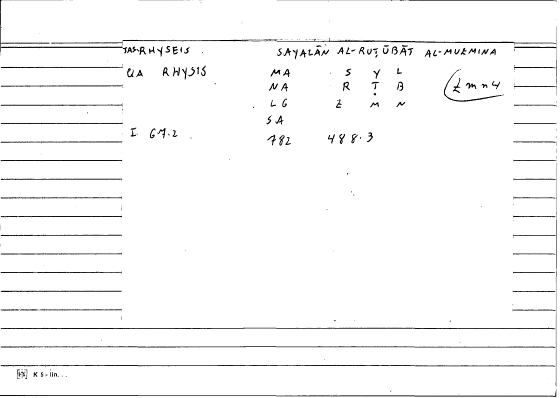 TAS-RHYSEIS SAYALĀN AL-RUṬŪBĀT AL-MUZMINA
QA RHYSIS MA S Y L
NA R Ṭ B (zmn4
LG Z M N
SA
I 67.2 782 488.3
K 5-lin...